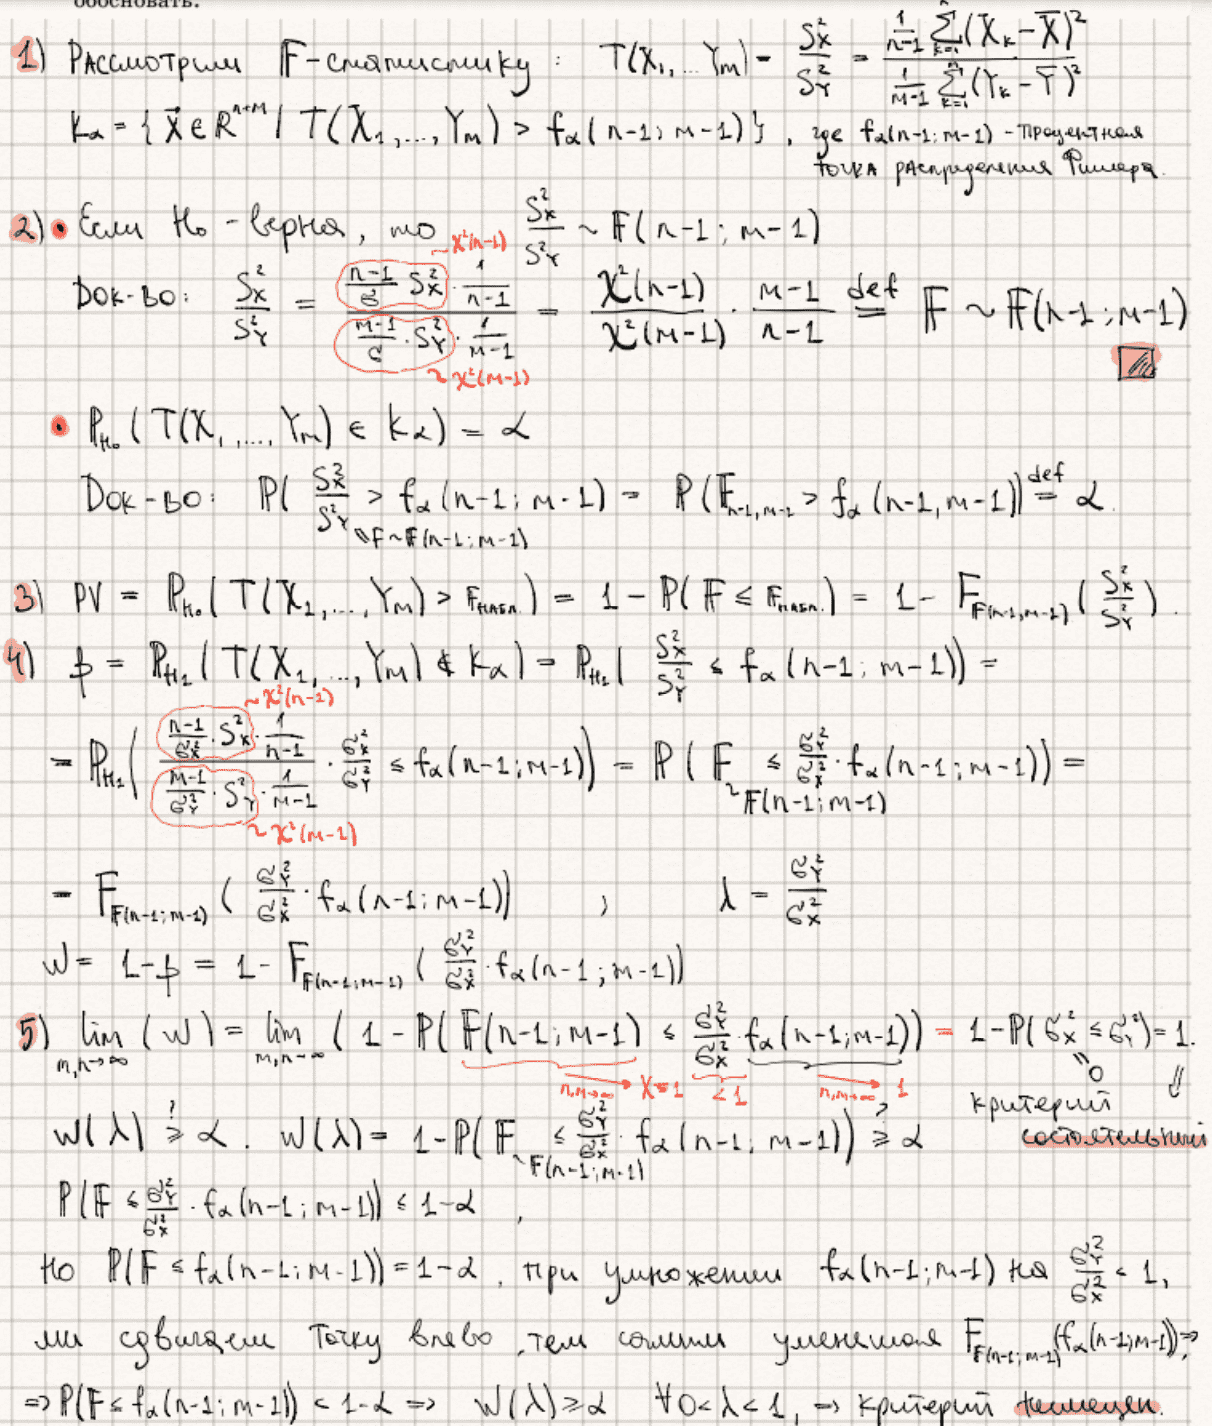 обосновать.
1) Рассмотрим F-статистику : T(X₁,...Yₘ) = S²_X / S²_Y = (1/(n-1) Σ_{k=1}^{n} (X_k - X̄)²) / (1/(m-1) Σ_{k=1}^{m} (Y_k - Ȳ)²)
K_α = { X⃗ ∈ R^{n+m} | T(X₁,...,Yₘ) > f_α(n-1; m-1) }, где f_α(n-1; m-1) - процентная
точка распределения Фишера.
2) • Если H₀ - верна, то S²_X / S²_Y ~ F(n-1; m-1)
~ χ²(n-1)
Док-во: S²_X / S²_Y = ((n-1)/σ S²_X · 1/(n-1)) / ((m-1)/σ · S²_Y · 1/(m-1)) = χ²(n-1) / χ²(m-1) · (m-1)/(n-1) =def F ~ F(n-1; m-1)
~ χ²(m-1)
• P_{H₀}( T(X₁,...,Yₘ) ∈ K_α) = α
Док-во: P( S²_X / S²_Y > f_α(n-1; m-1) ) = P( F_{n-1,m-1} > f_α(n-1, m-1)) =def α.
F ~ F(n-1; m-1)
3) PV = P_{H₀}( T(X₁,...,Yₘ) > F_набл.) = 1 - P( F ≤ F_набл.) = 1 - F_{F(n-1,m-1)} ( S²_X / S²_Y ).
4) β = P_{H₁}( T(X₁,...,Yₘ) ∉ K_α) = P_{H₁}( S²_X / S²_Y ≤ f_α(n-1; m-1)) =
~ χ²(n-1)
= P_{H₁}( ((n-1)/σ²_X · S²_X · 1/(n-1)) / ((m-1)/σ²_Y · S²_Y · 1/(m-1)) · σ²_X / σ²_Y ≤ f_α(n-1; m-1)) = P( F ≤ σ²_Y / σ²_X · f_α(n-1; m-1)) =
~ F(n-1; m-1)
~ χ²(m-1)
= F_{F(n-1; m-1)} ( σ²_Y / σ²_X · f_α(n-1; m-1)) , λ = σ²_Y / σ²_X
W = 1-β = 1 - F_{F(n-1; m-1)} ( σ²_Y / σ²_X · f_α(n-1; m-1))
5) lim_{m,n→∞} (W) = lim_{m,n→∞} ( 1 - P( F(n-1; m-1) ≤ σ²_Y / σ²_X · f_α(n-1; m-1)) = 1 - P( σ²_X ≤ σ²_Y) = 1.
n,m→∞ → X=1 < 1 n,m→∞ → 1 " 0 ⇓
критерий
W(λ) ≥? α. W(λ) = 1 - P( F ≤ σ²_Y / σ²_X · f_α(n-1; m-1)) ≥? α состоятельный
~ F(n-1; m-1)
P( F ≤ σ²_Y / σ²_X · f_α(n-1; m-1)) ≤ 1-α ,
Но P( F ≤ f_α(n-1; m-1)) = 1-α, при умножении f_α(n-1; m-1) на σ²_Y / σ²_X < 1,
мы сдвигаем точку влево, тем самым уменьшая F_{F(n-1; m-1)}(f_α(n-1; m-1)) ⇒
⇒ P( F ≤ f_α(n-1; m-1)) < 1-α ⇒ W(λ) ≥ α ∀ 0 < λ < 1, ⇒ критерий несмещен.